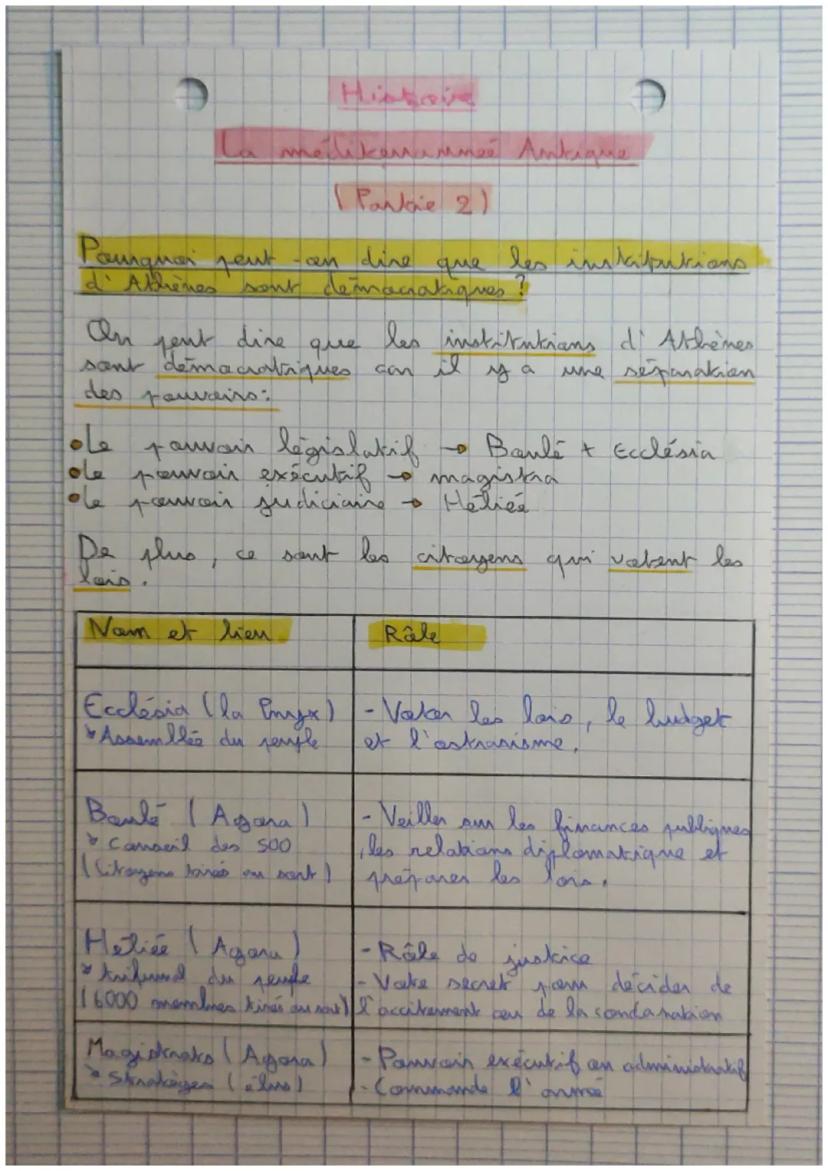 Histoire
La méditerrannée Antique
(Partie 2)
Pourquoi peut-on dire que les institutions
d'Athènes sont démocratiques ?
On peut dire que les institutions d'Athènes
sont démocratiques car il y a une séparation
des pouvoirs :
• Le pouvoir législatif → Boulé + Ecclésia
• Le pouvoir exécutif → magistra
• Le pouvoir judiciaire → Héliée
De plus, ce sont les citoyens qui votent les
lois.
Nom et lieu
Rôle
Ecclésia (la Pnyx)
↘ Assemblée du peuple
- Voter les lois, le budget
et l'ostracisme.
Boulé (Agora)
↘ conseil des 500
(Citoyens tirés au sort)
- Veiller sur les finances publiques
, les relations diplomatique et
préparer les lois.
Héliée (Agora)
↘ tribunal du peuple
(6000 membres tirés au sort)
- Rôle de justice
- Vote secret pour décider de
l'accitement ou de la condanation
Magistrats (Agora)
↘ Stratèges (élus)
- Pouvoir exécutif ou administratif
- Commande l'armé